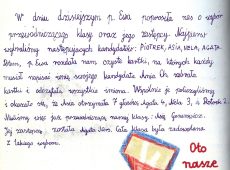 W dniu dzisiejszym p. Ewa poprosiła nas o wybór
przewodniczącego klasy oraz jego zastępcy. Najpierw
wybraliśmy następujących kandydatów: PIOTREK, ASIA, NELA, AGATA.
p. Ewa rozdała nam czyste kartki, na których każdy
musiał napisać imię swojego kandydata. Pani Ch. zebrała
kartki i odczytała wszystkie imiona. Wspólnie je policzyliśmy
i okazało się, że Asia otrzymała 7 głosów, Agata 4, Nela 3, a Piotrek 2.
Mieliśmy więc już przewodniczącą naszej klasy: Asię
Jej zastępcą została Agata Cała klasa była zadowolona
z takiego wyboru.
Oto
nasze